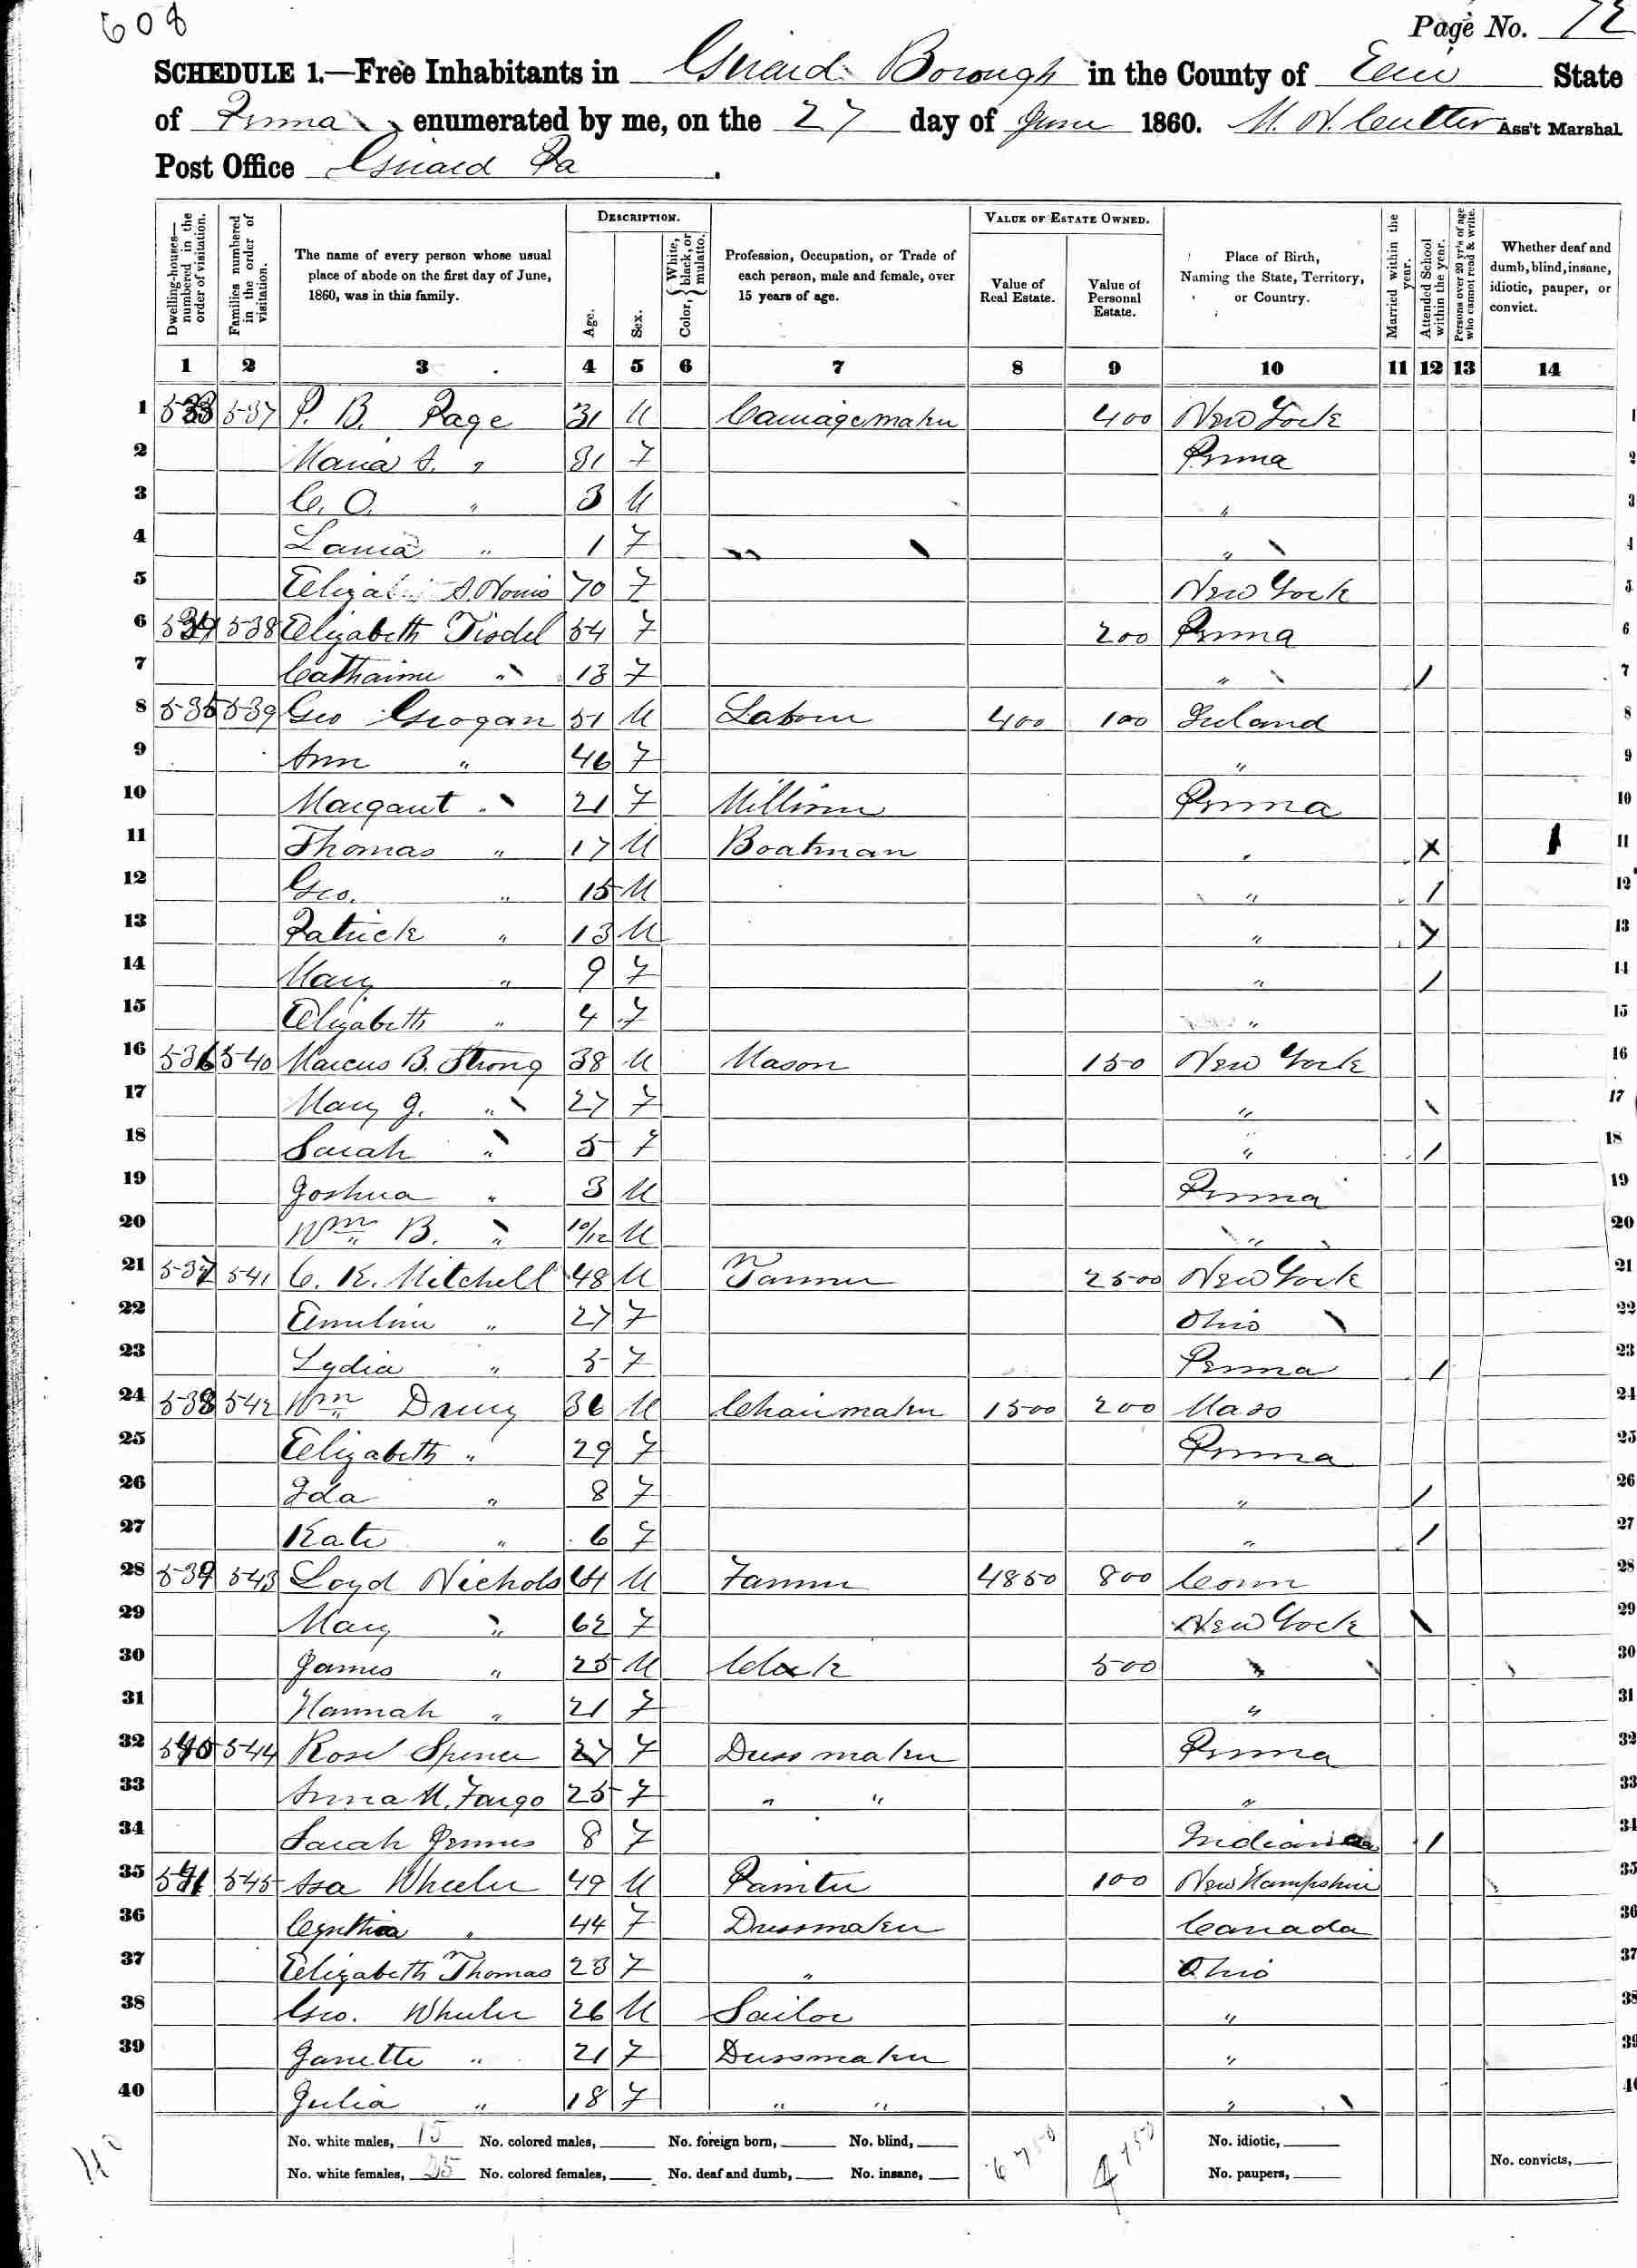 608
Page No. 72
SCHEDULE 1.—Free Inhabitants in Girard Borough in the County of Erie State
of Penna, enumerated by me, on the 27 day of June 1860. M. H. Cutter Ass't Marshal.
Post Office Girard Pa.
Dwelling-houses—numbered in the order of visitation.
Families numbered in the order of visitation.
The name of every person whose usual place of abode on the first day of June, 1860, was in this family.
DESCRIPTION.
Age.
Sex.
Color, { White, black, or mulatto.
Profession, Occupation, or Trade of each person, male and female, over 15 years of age.
VALUE OF ESTATE OWNED.
Value of Real Estate.
Value of Personal Estate.
Place of Birth, Naming the State, Territory, or Country.
Married within the year.
Attended School within the year.
Persons over 20 yr's of age who cannot read & write.
Whether deaf and dumb, blind, insane, idiotic, pauper, or convict.
1 2 3 4 5 6 7 8 9 10 11 12 13 14
1 533 537 P. B. Page 31 M Carriagemaker 400 New York 1
2 Maria S. " 31 F Penna 2
3 C. O. " 3 M " 3
4 " 1 F " 4
5 70 F New York 5
6 534 538 Elizabeth Tisdel 54 F 200 Penna 6
7 Catharine " 13 F " / 7
8 535 539 Geo Grogan 51 M Laborer 400 100 Ireland 8
9 Ann " 46 F " 9
10 Margaret " 21 F Milliner Penna 10
11 Thomas " 17 M Boatman " X 11
12 Geo. " 15 M " / 12
13 Patrick " 13 M " / 13
14 Mary " 9 F " / 14
15 Elizabeth " 4 F " 15
16 536 540 Marcus B. Strong 38 M Mason 150 New York 16
17 Mary J. " 27 F " 17
18 Sarah " 5 F " / 18
19 Joshua " 3 M Penna 19
20 Wm B. " 10/12 M " 20
21 537 541 C. K. Mitchell 48 M Tanner 2500 New York 21
22 Emeline " 27 F Ohio 22
23 Lydia " 5 F Penna / 23
24 538 542 Wm Drury 36 M Chairmaker 1500 200 Mass 24
25 Elizabeth " 29 F Penna 25
26 Ida " 8 F " / 26
27 Kate " 6 F " / 27
28 539 543 Loyd Nichols 64 M Farmer 4850 800 Conn 28
29 Mary " 62 F New York 29
30 James " 25 M Clerk 500 " 30
31 Hannah " 21 F " 31
32 540 544 Rose Spencer 27 F Dress maker Penna 32
33 Anna M. Fargo 25 F " " " 33
34 Sarah 8 F Indiana / 34
35 541 545 Asa Wheeler 49 M Painter 100 New Hampshire 35
36 Cynthia " 44 F Dressmaker Canada 36
37 Elizabeth Thomas 23 F " Ohio 37
38 Geo. Wheeler 26 M Sailor " 38
39 Janette " 21 F Dressmaker " 39
40 Julia " 18 F " " " 40
40
No. white males, 15 No. colored males, No. foreign born, No. blind, 6750 No. idiotic,
No. white females, 25 No. colored females, No. deaf and dumb, No. insane, No. paupers, No. convicts,